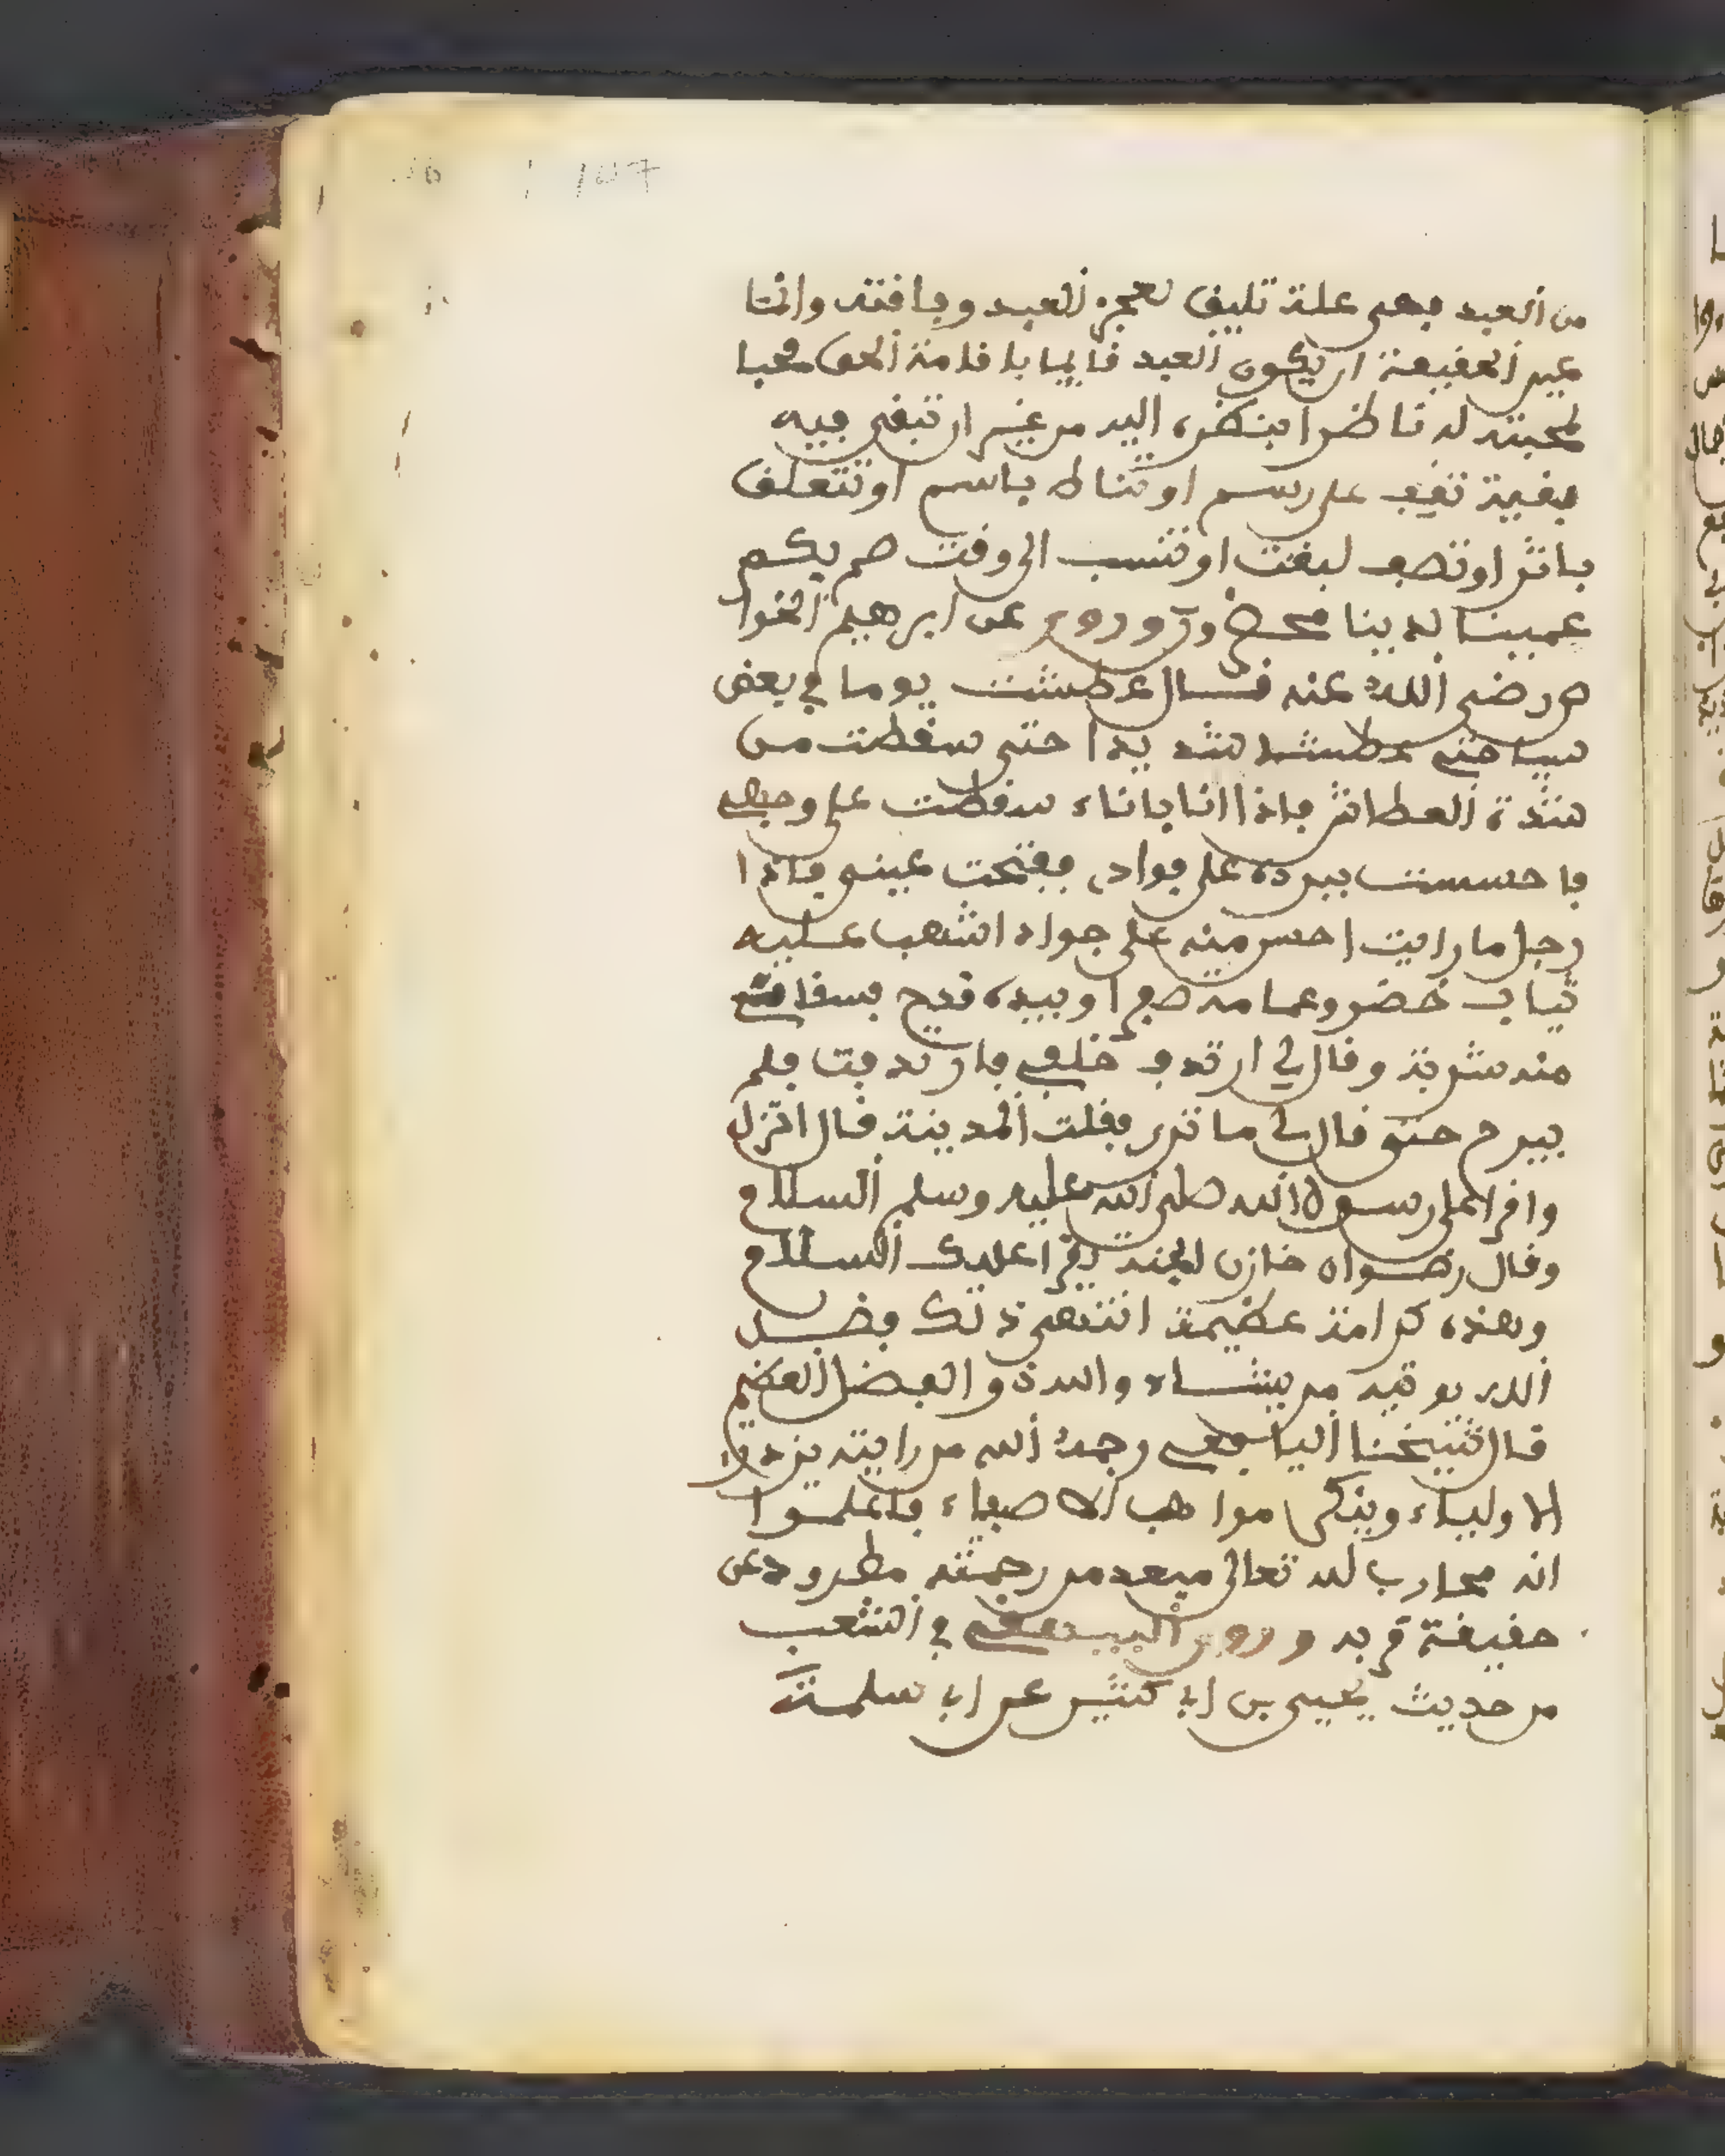 من العبد فهى علة تليق لعجز العبد وفاقته وانما
عين الحقيقة ان يكون العبد قايما باقامة الحق محبا
لمحبته له ناظرا بنظره اليه من غير ان تبقى فيه
بقية تقف على رسم او تناط باسم او تتعلق
باثر او توصف لبغت او تنسب الى وقت صم بكم
عمينا لدينا محضرون وروى عن ابرهيم الخوا
ص رضى الله عنه قال عطشت يوما في بعض
سياحتى عطشا شديدا حتى سقطت من
شدة العطش فاذا انا بماء سقطت على وجهى
فاحسست ببرده على فوادى ففتحت عينى فاذا
رجل ما رايت احسن منه على جواد اشهب عليه
ثياب خضر وعمامة صفرا وبيده قدح فسقانى
منه شربة وقال لي ارتدف خلفى فارتدفت فلم
يبرح حتى قال لي ما ترى فقلت المدينة قال انزل
واقرا على رسول الله صلى الله عليه وسلم السلام
وقال رضوان خازن الجنة يقرا عليك السلام
وهذه كرامة عظيمة انتهى ذلك فضل
الله يوتيه من يشاء والله ذو الفضل العظيم
قال شيخنا اليافعى رحمه الله من رايته يزدرى
الاولياء وينكر مواهب الاصفياء فاعلموا
انه محارب لله تعالى مبعد من رحمته مطرود عن
حقيقة قربه وروى البيهقى في الشعب
من حديث يحيى بن ابى كثير عن ابى سلمة